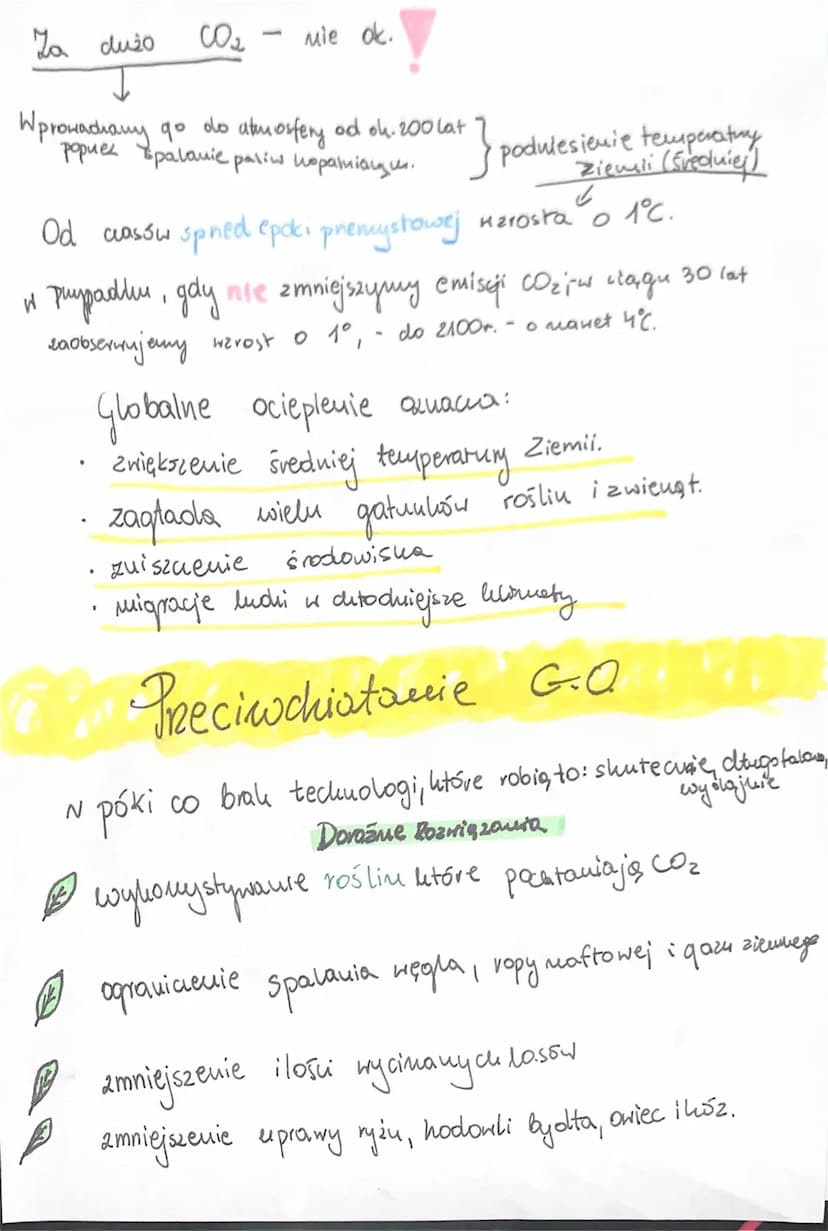 Za dużo CO₂ - nie ok.!
Wprowadzamy go do atmosfery od ok. 200 lat
poprzez spalanie paliw kopalnianych.
} podniesienie temperatury
Ziemii (średniej)
Od czasów sprzed epoki przemysłowej wzrosła o 1°C.
w przypadku, gdy nie zmniejszymy emisji CO₂ i-w ciągu 30 lat
zaobserwujemy wzrost o 1°, - do 2100r. - o nawet 4°C.
Globalne ocieplenie oznacza:
· zwiększenie średniej temperatury Ziemii.
· zagłada wielu gatunków roślin i zwierząt.
· zniszczenie środowiska
· migracje ludzi w chłodniejsze klimaty
Przeciwdziałanie G.O
N póki co brak technologi, które robią to: skutecznie, długofalowo,
wydajnie
Doraźne Rozwiązania
wykorzystywanie roślin które pochłaniają CO₂
ograniczenie spalania węgla, ropy naftowej i gazu ziemnego
zmniejszenie ilości wycinanych lasów
zmniejszenie uprawy ryżu, hodowli bydła, owiec i kóz.